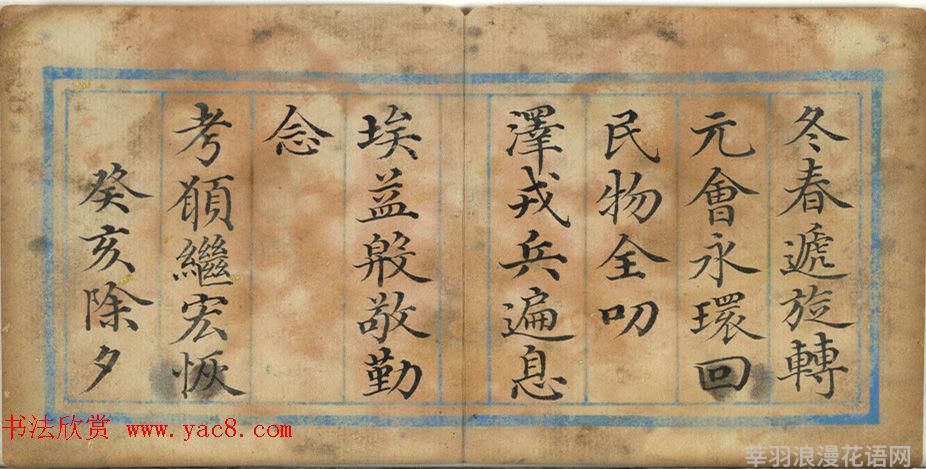 冬春遞旋轉
元會永環回
民物全叨
澤戎兵遍息
埃益殷敬勤
念
考頫繼宏恢
癸亥除夕
书法欣赏 www.yac8.com
幸羽浪漫花语网